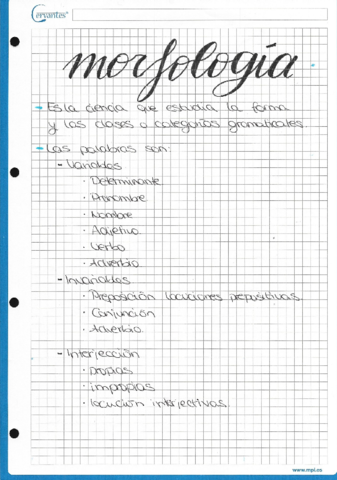 Cervantes
morfología
- Es la ciencia que estudia la forma
y las clases o categorías gramaticales.
- Las palabras son:
- Variables
· Determinante
· Pronombre
· Nombre
· Adjetivo
· Verbo
· Adverbio
- Invariables
· Preposición locuciones prepositivas.
· Conjunción
· Adverbio
- Interjección
· propias
· impropias
· locución interjectivas.
www.mpi.es